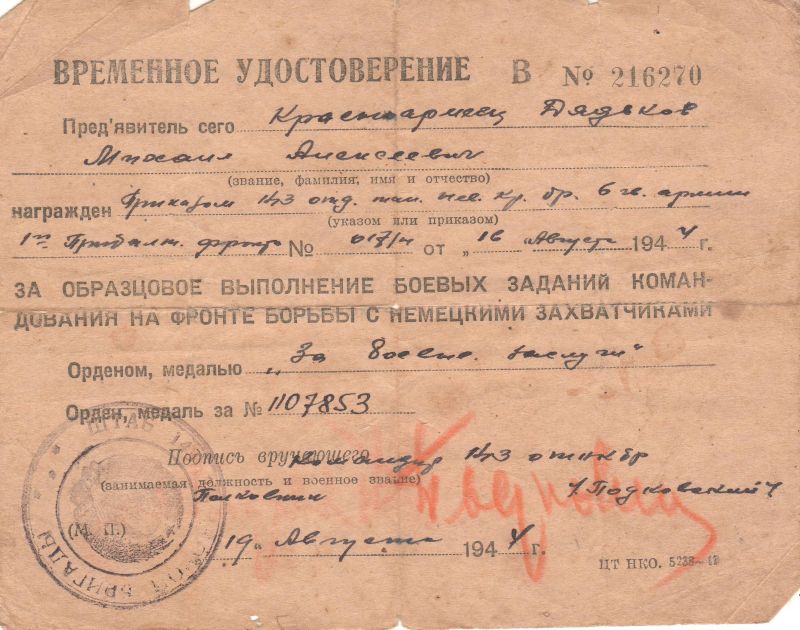 ВРЕМЕННОЕ УДОСТОВЕРЕНИЕ В № 216270
Пред'явитель сего Красноармеец Дядьков
Михаил Алексеевич
(звание, фамилия, имя и отчество)
награжден Приказом 143 отд. тан. нев. кр. бр. 6 гв. армии
(указом или приказом)
1го Прибалт. фронта № 017/н от „16 Августа 1944 г.
ЗА ОБРАЗЦОВОЕ ВЫПОЛНЕНИЕ БОЕВЫХ ЗАДАНИЙ КОМАН-
ДОВАНИЯ НА ФРОНТЕ БОРЬБЫ С НЕМЕЦКИМИ ЗАХВАТЧИКАМИ
Орденом, медалью „За боевые заслуги"
Орден, медаль за № 1107853
Подпись вручающего Командир 143 отнкбр
(занимаемая должность и военное звание)
Полковник /Подковский/
(М. П.)
19 Августа 1944 г.
ЦТ НКО. 5238—42
ШТАБ 143
БРИГАДЫ